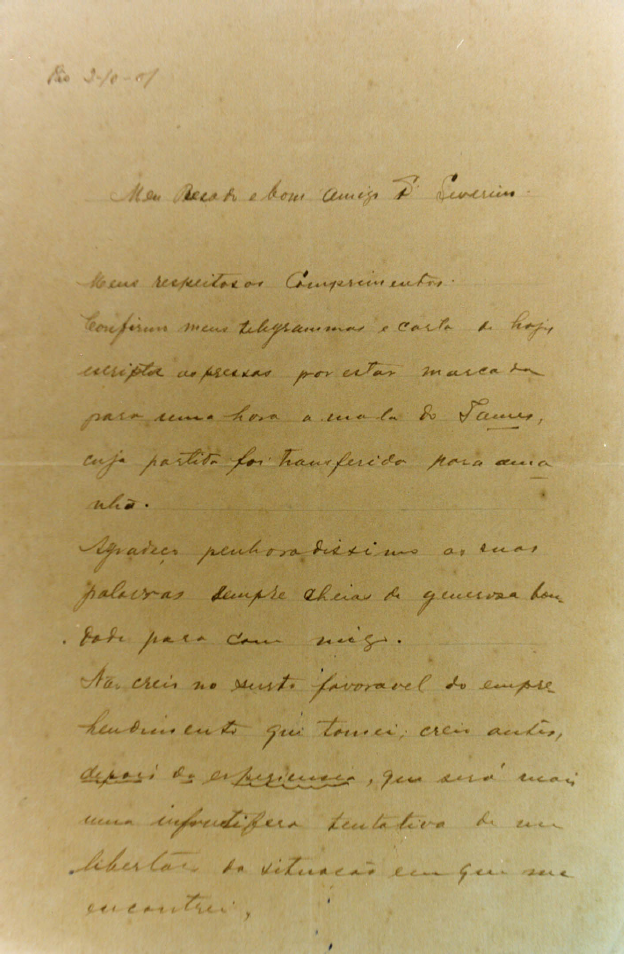 Rio 2-10-01
Meu Prezado e bom amigo Dr Severino.
Meus respeitosos Comprimentos.
Confirmo meus telegrammas e carta de hoje
escripta as pressas por estar marcada
para uma hora a mala do Tames,
cuja partida foi transferida para ama
nhã.
Agradeço penhoradissimo as suas
palavras sempre cheias de generosa bon
dade para com migo.
Não creio no surto favoravel do empre
hendimento que tomei; creio antes,
depois da experiencia, que será mais
uma infrutifera tentativa de me
libertar da situação em que me
encontrei,